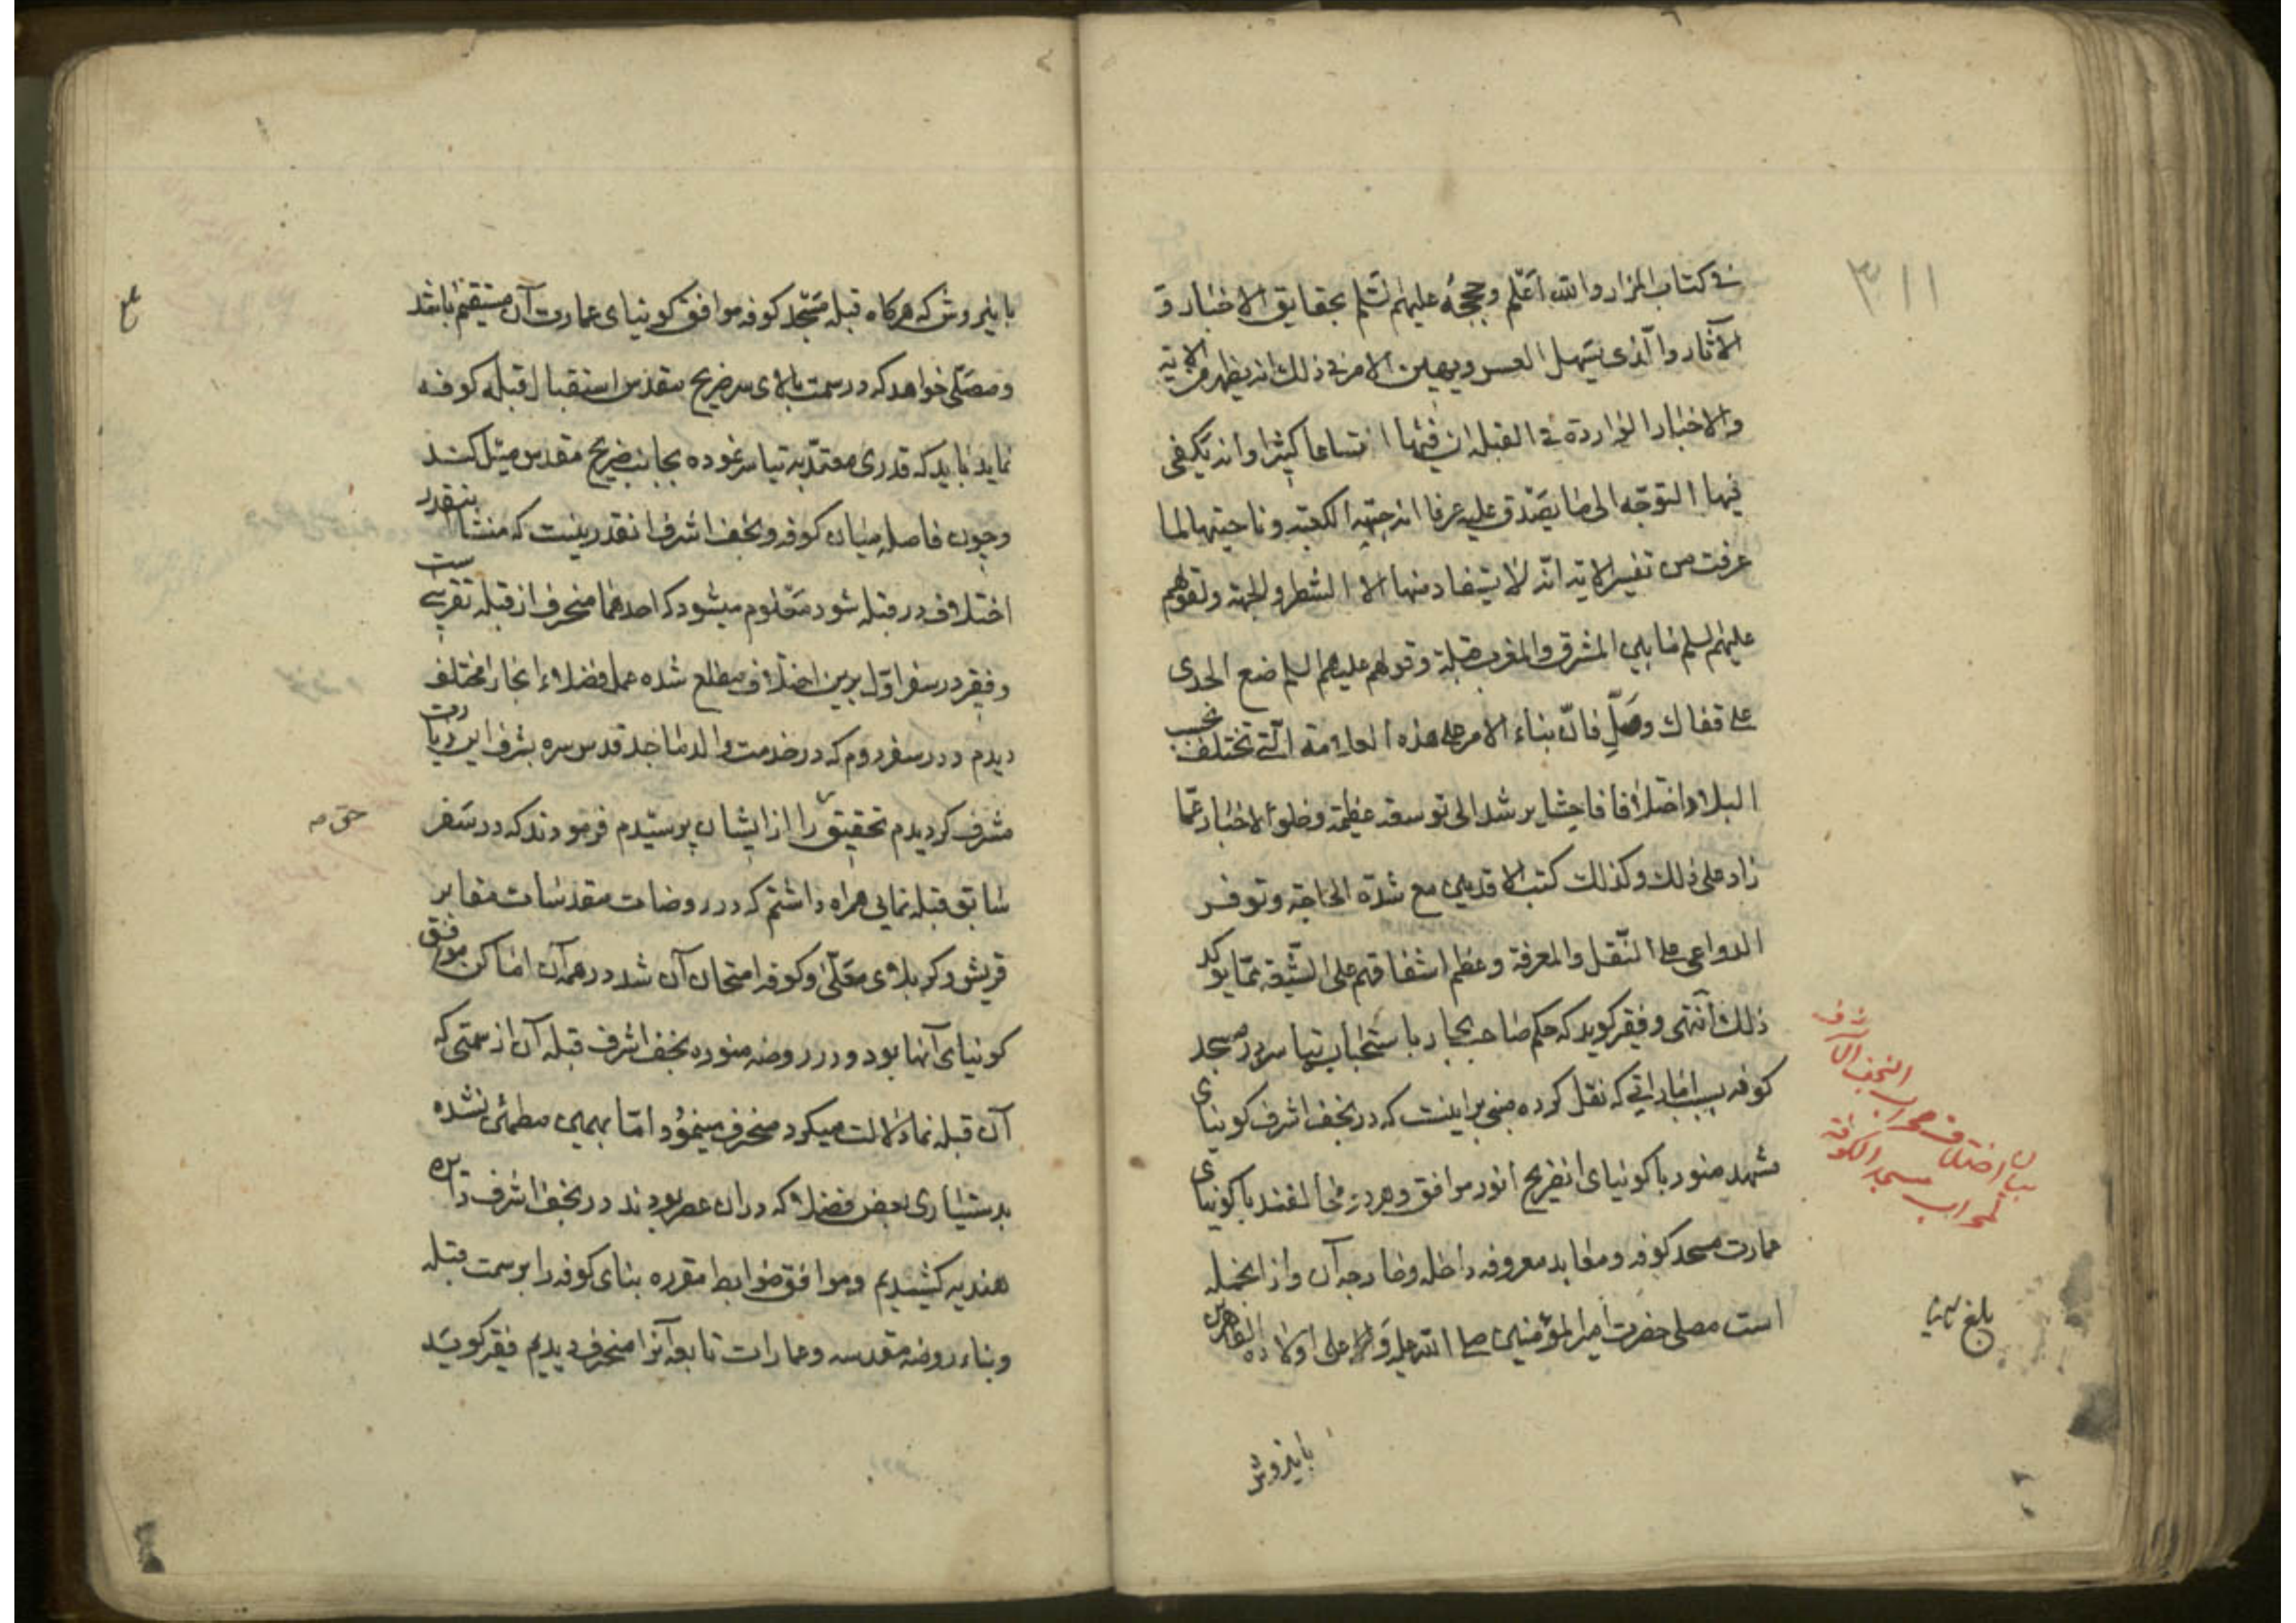 في كتاب المزار والله أعلم وحججه عليهم السلم بحقايق الاخبار و
الآثار والذي يسهل العسر ويهين الامر في ذلك انه يظهر من الاية
والاخبار الواردة في القبلة ان فيها اتساعا كثيرا وانه يكفي
فيها التوجه الى ما يصدق عليه عرفا انه جهة الكعبة وناحيتها لما
عرفت من تفسير الاية انه لا يستفاد منها الا الشطر والجهة ولقولهم
عليهم السلم ما بين المشرق والمغرب قبلة وقولهم عليهم السلم ضع الجدى
على قفاك وصلّ فانّ بناء الامر على هذه العلامة الّتي تختلف بحسب
البلاد اختلافا فاحشا يرشد الى توسعة عظيمة وخلو الاخبار عمّا
زاد على ذلك وكذلك كتب الاقدمين مع شدّة الحاجة وتوفر
الدواعي على النّقل والمعرفة وعظم اشفاقهم على الشّيعة ممّا يؤكد
ذلك انتهى وفقير كويد كه حكم صاحب بحار باستحباب تياسر در مسجد
كوفه بسبب اماراتي كه نقل كرده مبنى بر اينست كه در نجف اشرف كونياى
مشهد منور با كونياى انضريح انور موافق وهر دو مخالفند با كونياى
عمارت مسجد كوفه ومعابد معروفه داخله وخارجه آن واز انجمله
است مصلى حضرت امير المؤمنين صلى الله عليه وآله وعلى اولاده الطاهرين
باينروش
٣١١
بيان اختلاف محراب النجف الاشرف
لمحراب مسجد الكوفة
بلغ
باينروش كه هركاه قبله مسجد كوفه موافق كونياى عمارت آن مستقيم باشد
ومصلّى خواهد كه در سمت بالاى سر ضريح مقدس استقبال قبله كوفه
نمايد بايد كه قدرى معتدّ به تياسر نموده بجانب ضريح مقدس ميل كند
وچون فاصله ميان كوفه ونجف اشرف انقدر نيست كه منشا اينقدر
اختلاف در قبله شود معلوم ميشود كه احدهما منحرف از قبله تقريبى است
وفقير در سفر اوّل برين اختلاف مطلع شده عمل فضلاء انجا را مختلف
ديدم ودر سفر دوم كه در خدمت والد ماجد قدس سره بشرف اين زيارت
مشرف كرديدم تحقيق را از ايشان پرسيدم فرمودند كه در سفر
سابق قبله نمايى همراه داشتم كه در روضات مقدسات مقابر
قريش وكربلاى معلّى وكوفه امتحان آن شد در همه آن اماكن موافق
كونياى آنها بود ودر روضه منوره نجف اشرف قبله آن از سمتى كه
آن قبله نما دلالت ميكرد منحرف مينمود امّا بهمين مطمئن نشده
بدستيارى بعض فضلا كه در ان عصر بودند در نجف اشرف دائره
هنديه كشيديم وموافق ضوابط مقرره بناى كوفه را بر سمت قبله
وبناء روضه مقدسه وعمارات تابعه آنرا منحرف ديديم فقير كويد